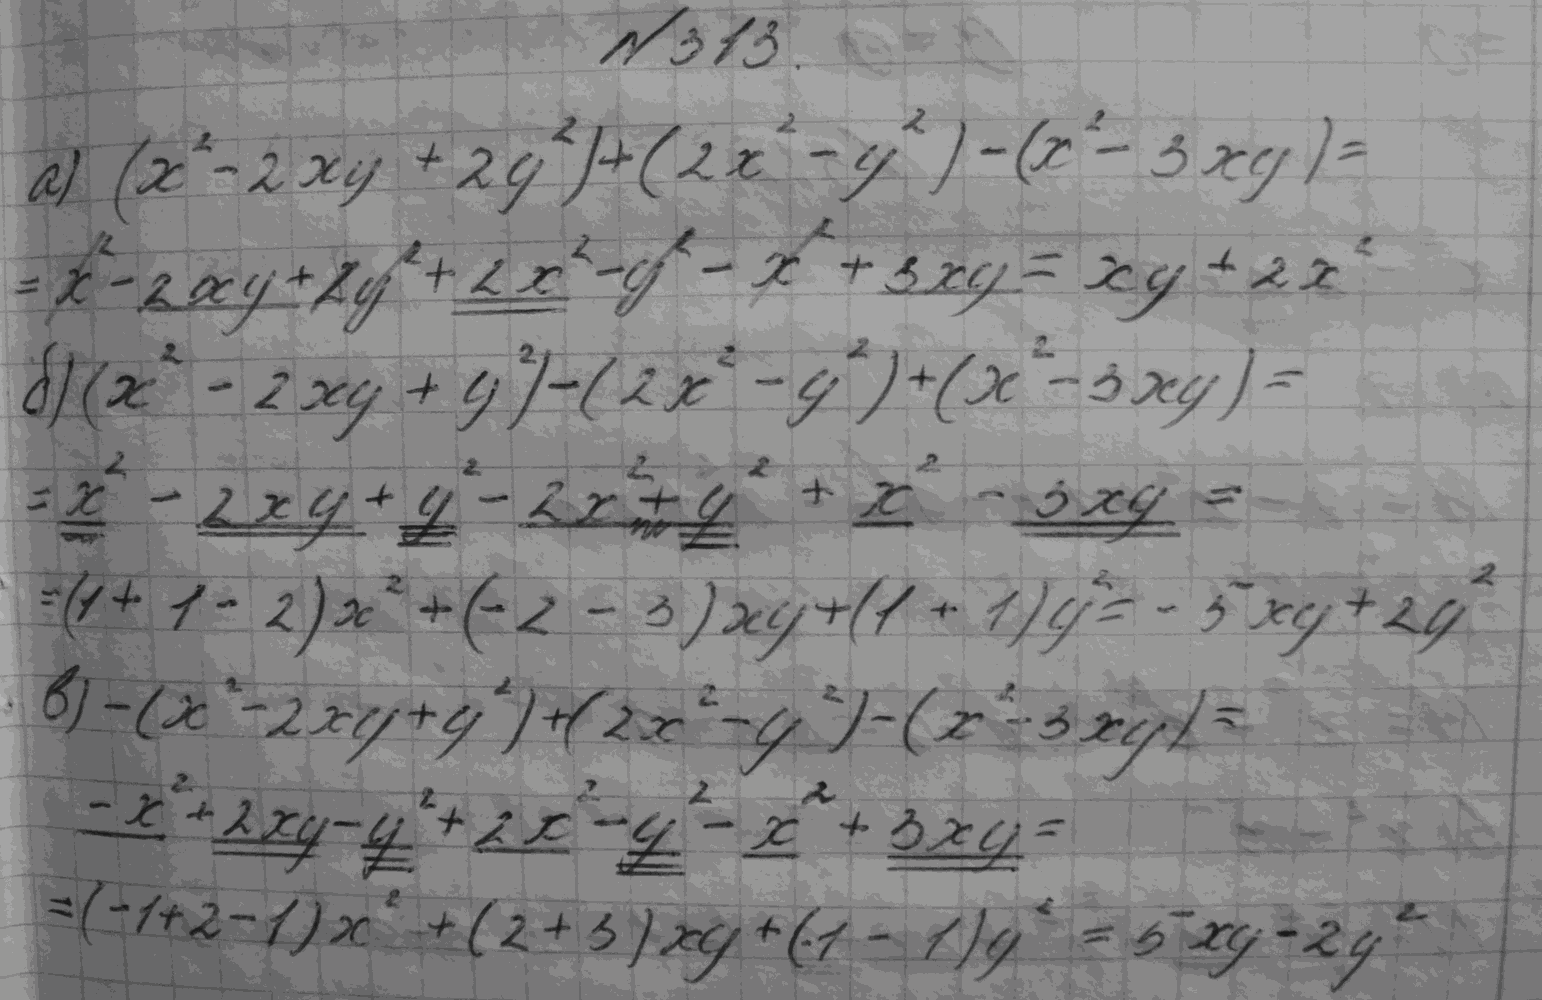 №313.
а) (x² - 2xy + 2y²) + (2x² - y²) - (x² - 3xy) =
= x² - 2xy + 2y² + 2x² - y² - x² + 3xy = xy + 2x²
б) (x² - 2xy + y²) - (2x² - y²) + (x² - 3xy) =
= x² - 2xy + y² - 2x² + y² + x² - 3xy =
= (1 + 1 - 2)x² + (-2 - 3)xy + (1 + 1)y² = -5xy + 2y²
в) -(x² - 2xy + y²) + (2x² - y²) - (x² - 3xy) =
-x² + 2xy - y² + 2x² - y² - x² + 3xy =
= (-1 + 2 - 1)x² + (2 + 3)xy + (-1 - 1)y² = 5xy - 2y²